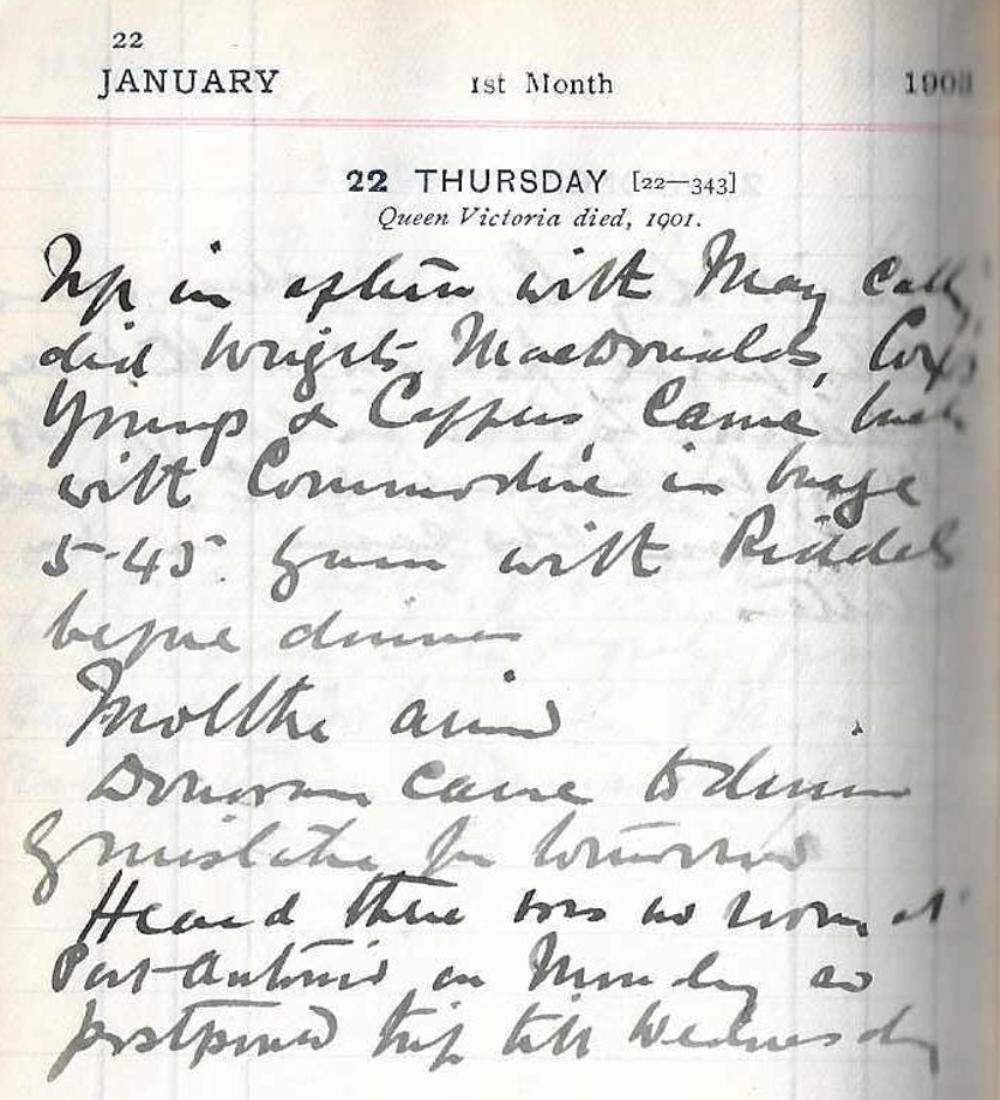 22
JANUARY 1st Month 1903
22 THURSDAY [22—343]
Queen Victoria died, 1901.
Up in aftern with May Call
did Wrights MacDonalds, Cox,
Young & Cappers. Came back
with Commodore in barge
5-45. with Riddel
before dinner
Moltke arrived
Donovan came to dinner
by mistake for tomorrow
Heard there was no room at
Port Antonio on Monday so
postponed trip till Wednesday